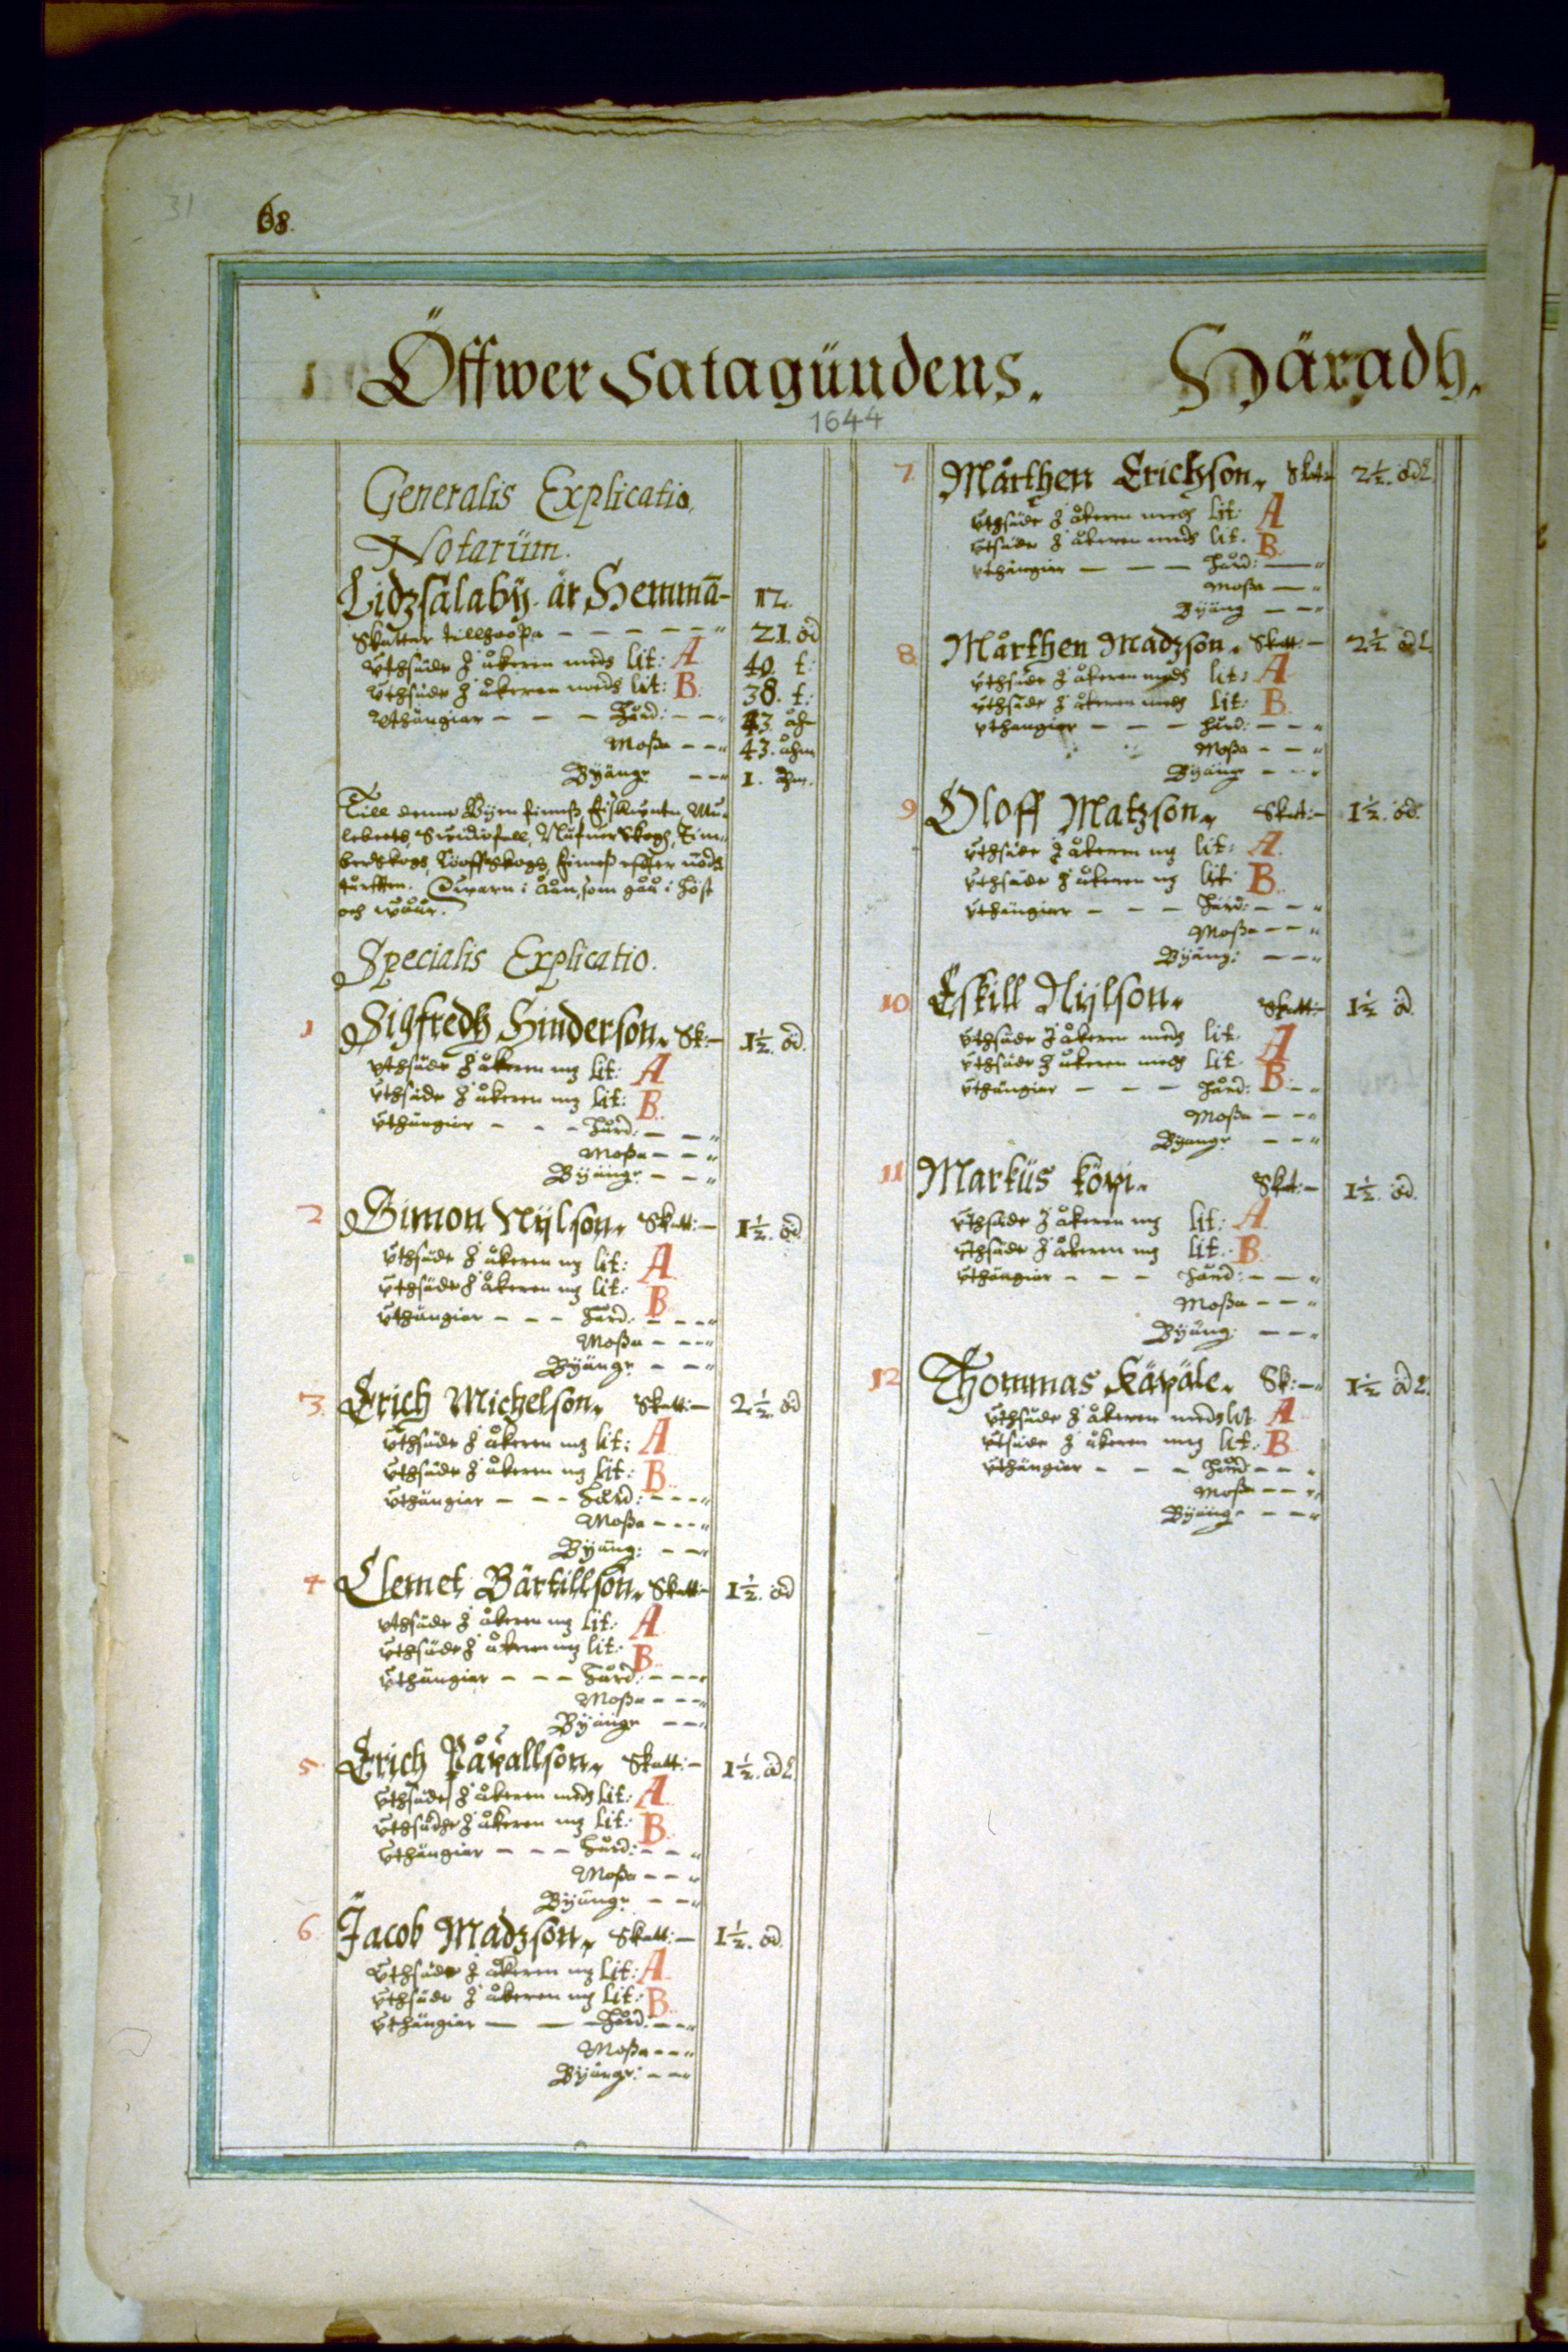 31
68.
Öffwer Satagündens. Häradh.
1644
Generalis Explicatio
Notarüm.
Lidzsälaby. är Hemmā- 12.
Skatter tillhoopa - - - - - 21. öd
Uthsäde j åkeren medh lit: A 40. t:
Uthsäde j åkeren medh lit: B. 38. t:
Uthängier - - - Hård: - - 43. åh
Moßa - - 43. åhm
Byänge - - 1. åhm.
Till denne Byen finneß Fiskevatn, Mu-
lebeeth,
berskogh, Löffskogh, finneß effter nödh
turfften. Qwarn i Åån, som gåår i höst
och wåår.
Specialis Explicatio.
1 Sigfredh Hinderson. Sk:- 1½. öd.
Uthsäde j åkeren mz lit: A
Uthsäde j åkeren mz lit: B.
Uthängier - - - Hård: - -
Moßa - -
Byänge - -
2 Simon Nylson. Skatt:- 1½. öd.
Uthsäde j åkeren mz lit: A
Uthsäde j åkeren mz lit: B
Uthängier - - - Hård: - - -
Moßa - - -
Byänge - -
3. Erich Michelson. Skatt:- 2.½. öd
Uthsäde j åkeren mz lit: A
Uthsäde j åkeren mz lit: B.
Uthängier - - - Hård: - - -
Moßa - - -
Byäng: - -
4 Clemet Bärtillson. Skatt:- 1½. öd
Uthsäde j åkeren mz lit: A
Uthsäde j åkeren mz lit: B.
Uthängier - - - Hård: - - -
Moßa - - -
Byänge - -
5. Erich Påvallson. Skatt:- 1½. öd
Uthsäde j åkeren medh lit: A
Uthsädhe j åkeren mz lit: B.
Uthängier - - - Hård: - - -
Moßa - - -
Byänge - -
6. Jacob Madzson. Skatt:- 1½. öd.
Uthsäde j åkeren mz lit: A
Uthsäde j åkeren mz lit: B.
Uthängier - - - Hård: - -
Moßa - - -
Byänge: - -
7. Mårthen Erichson. Skat:- 2½. öd
Uthsäde j åkeren medh lit: A
Utsäde j åkeren medh lit. B.
Uthängier - - - Hård: -
Moßa -
Byäng - -
8. Mårthen Madzson. Skatt:- 2½ öd
Uthsäde j åkeren medh lit: A
Uthsäde j åkeren medh lit: B.
Uthängier - - - Hård: - - -
Moßa - - -
Byäng - - -
9 Oloff Matzson. Skatt:- 1½. öd.
Uthsäde j åkeren mz lit: A
Uthsäde j åkeren mz lit: B.
Uthängier - - - Hård: - - -
Moßa - - -
Byäng: - -
10 Eskill Nylson. Skatt:- 1½ öd
Uthsäde j åkeren medh lit. A
Uthsäde j åkeren medh lit. B.
Uthängier - - - Hård: - -
Moßa - - -
Byänge - -
11 Markus Skat:- 1½. öd.
Uthsäde j åkeren mz lit: A
Uthsäde j åkeren mz lit: B.
Uthängier - - - Hård: - - -
Moßa - - -
Byäng: - -
12 Thommas Käpäle. Sk:- 1½ öd
Uthsäde j åkeren medh lit A
Utsäde j åkeren mz lit: B
Uthängier - - - Hård - - -
Moßa - - -
Byäng - - -